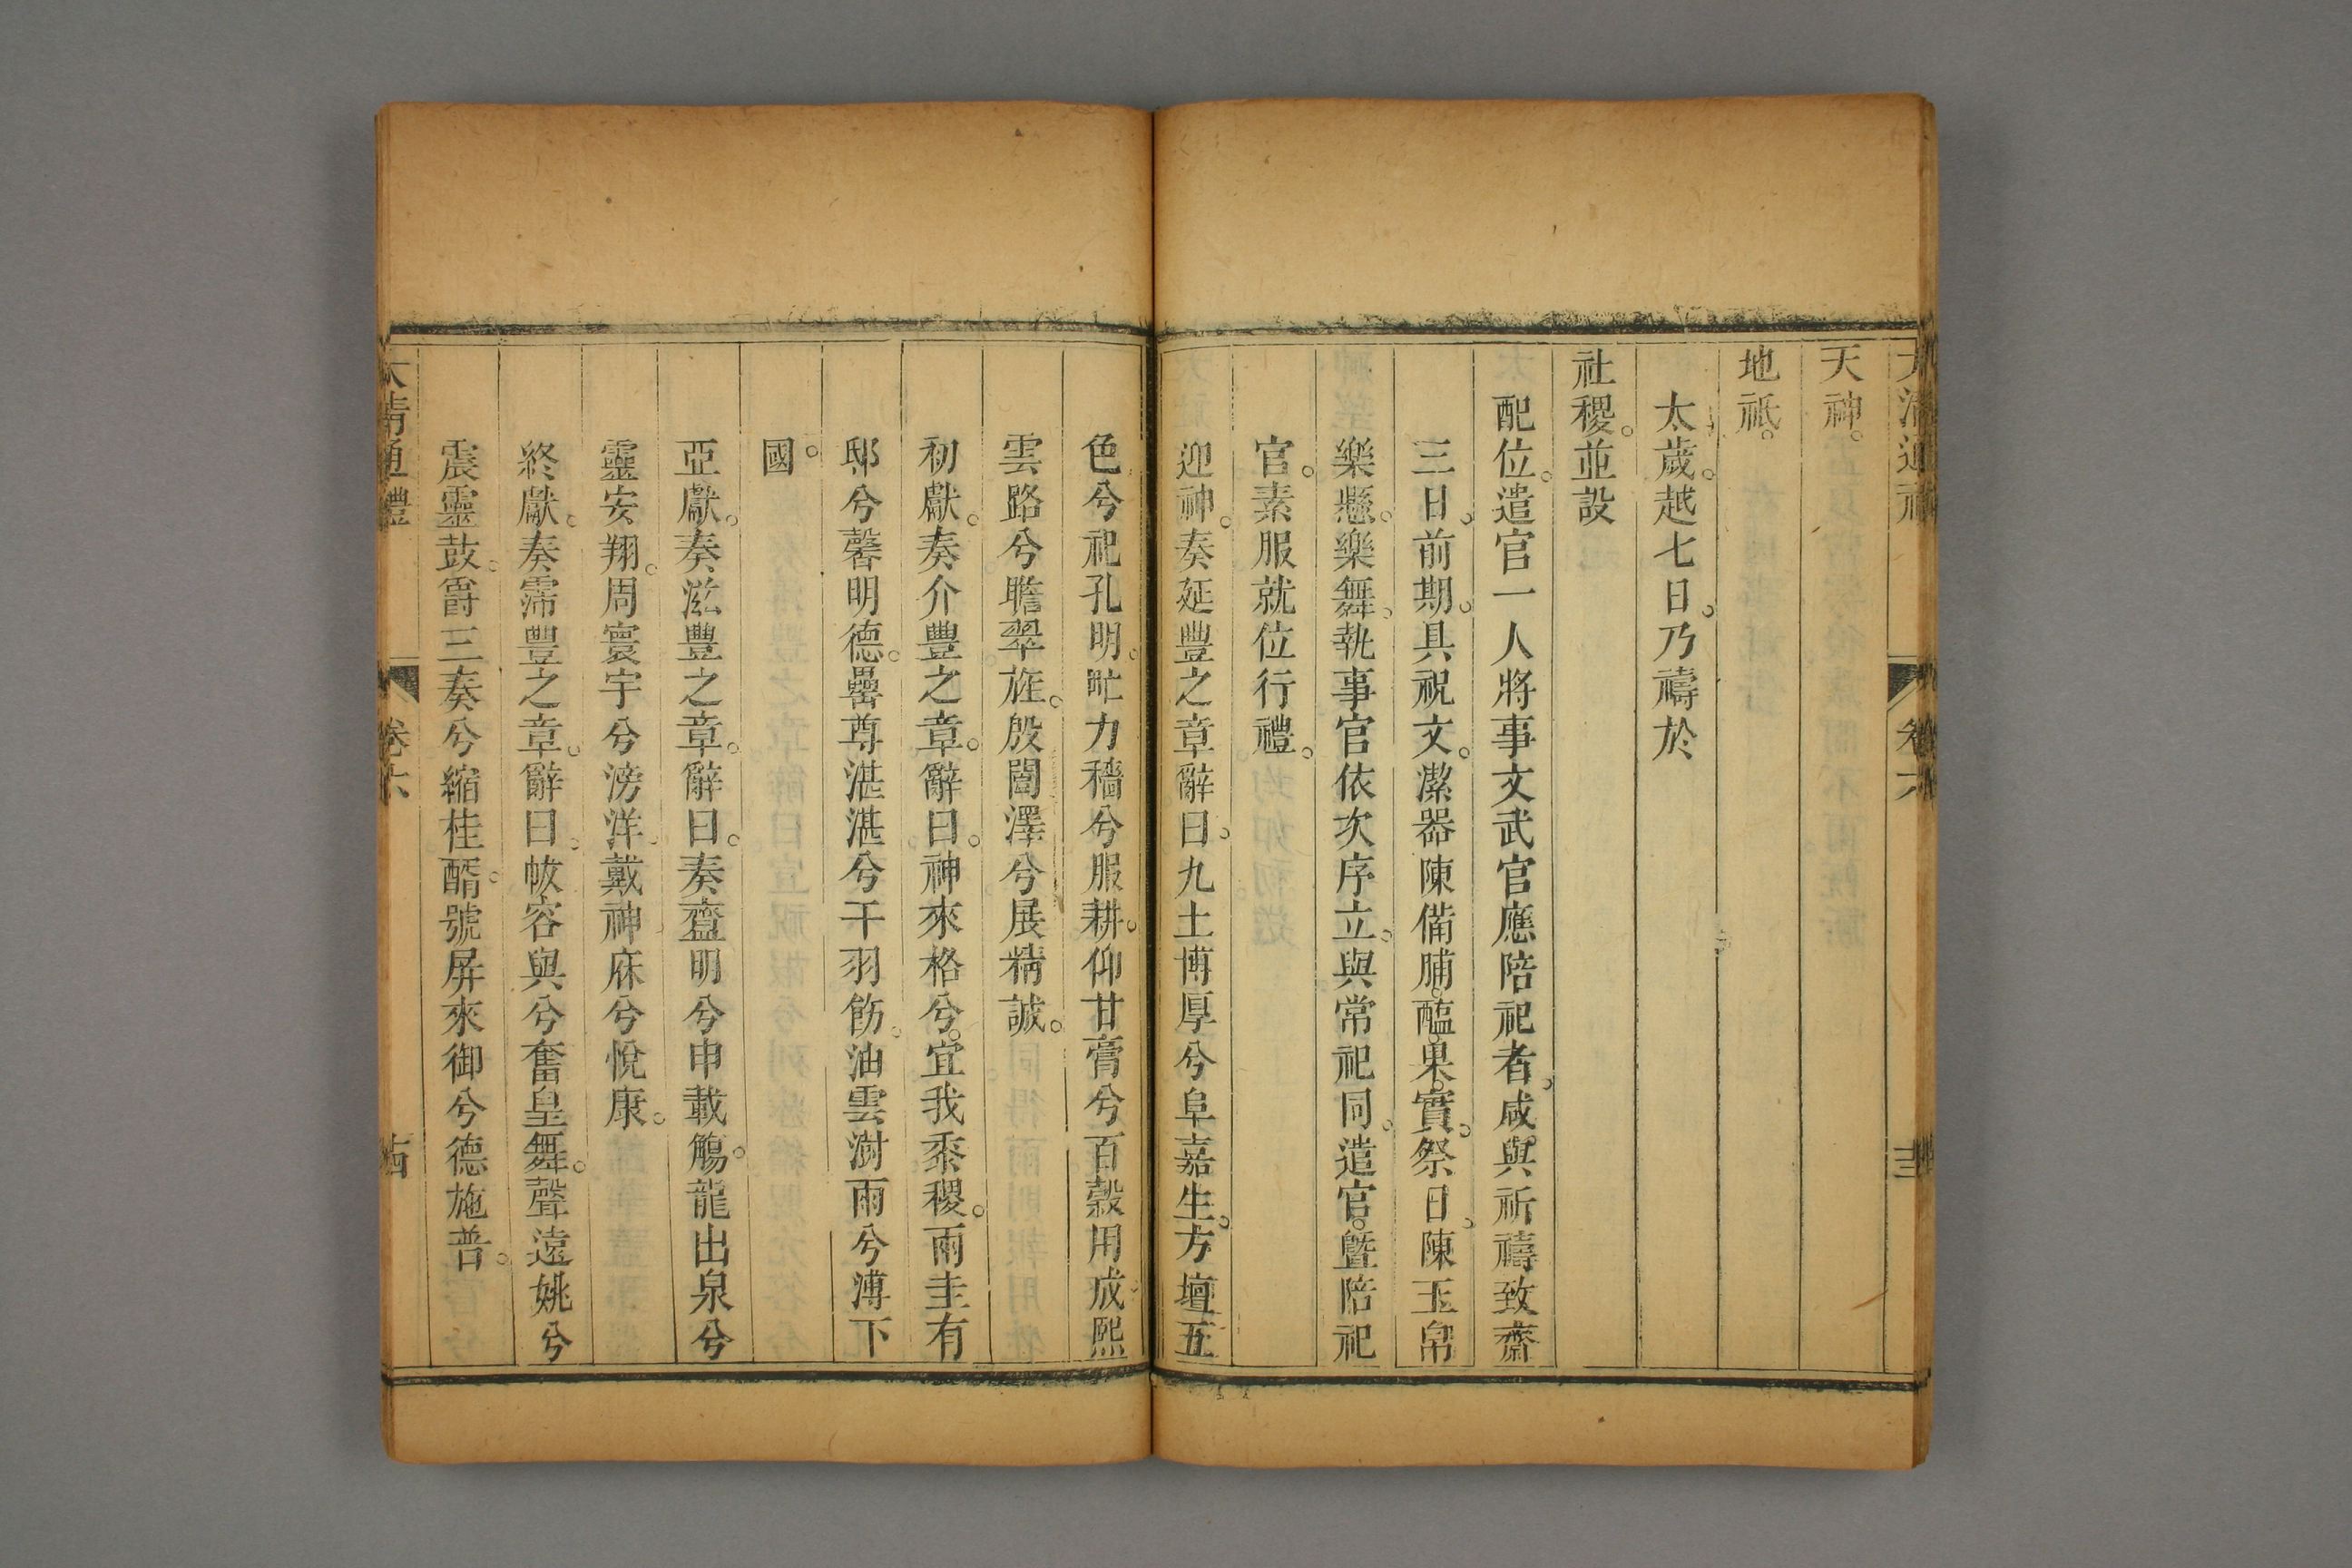 大清通禮 卷六
天神。
地祇。
太歲。越七日。乃禱於
社稷。並設
配位。遣官一人將事文武官應陪祀者。咸與祈禱致齋
三日。前期。具祝文。潔器陳備脯。醢。果。實。祭日。陳玉帛
樂懸。樂舞。執事官依次序立。與常祀同。遣官。曁陪祀
官。素服就位行禮。
迎神。奏延豐之章辭曰。九土博厚兮阜嘉生。方壇五
色兮祀孔明。甿力穡兮服耕。仰甘膏兮百榖用成熙
雲路兮瞻翠旌。殷闓澤兮展精誠。
初獻。奏介豐之章。辭曰。神來格兮。宜我黍稷。雨圭有
邸兮馨明德。罍尊湛湛兮干羽飭。油雲澍雨兮溥下
國。
亞獻。奏滋豐之章。辭曰。奏齍明兮申載觴。龍出泉兮
靈安翔。周寰宇兮滂洋。戴神庥兮悅康。
終獻。奏霈豐之章。辭曰。帗容與兮奮皇舞。聲遠姚兮
震靈鼓。爵三奏兮縮桂醑。號屏來御兮德施普。
大清通禮 卷六